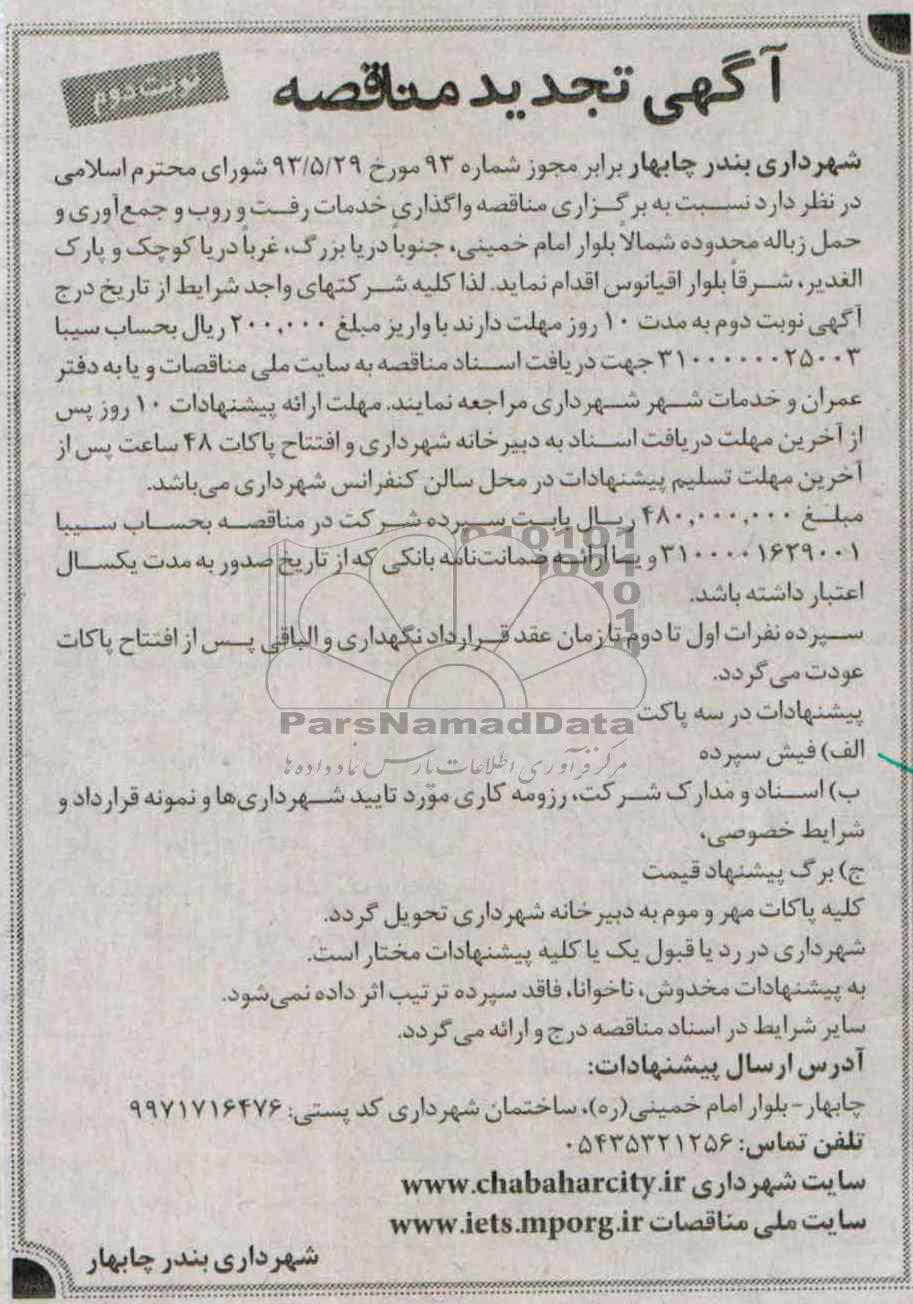 آگهی تجدید مناقصه
نوبت دوم
شهرداری بندر چابهار برابر مجوز شماره ۹۳ مورخ ۹۳/۵/۲۹ شورای محترم اسلامی
در نظر دارد نسبت به برگزاری مناقصه واگذاری خدمات رفت و روب و جمع‌آوری و
حمل زباله محدوده شمالاً بلوار امام خمینی، جنوباً دریا بزرگ، غرباً دریا کوچک و پارک
الغدیر، شرقاً بلوار اقیانوس اقدام نماید. لذا کلیه شرکتهای واجد شرایط از تاریخ درج
آگهی نوبت دوم به مدت ۱۰ روز مهلت دارند با واریز مبلغ ۲۰۰,۰۰۰ ریال بحساب سیبا
۳۱۰۰۰۰۰۰۲۵۰۰۳ جهت دریافت اسناد مناقصه به سایت ملی مناقصات و یا به دفتر
عمران و خدمات شهر شهرداری مراجعه نمایند. مهلت ارائه پیشنهادات ۱۰ روز پس
از آخرین مهلت دریافت اسناد به دبیرخانه شهرداری و افتتاح پاکات ۴۸ ساعت پس از
آخرین مهلت تسلیم پیشنهادات در محل سالن کنفرانس شهرداری می‌باشد.
مبلغ ۴۸۰,۰۰۰,۰۰۰ ریال بابت سپرده شرکت در مناقصه بحساب سیبا
۳۱۰۰۰۰۱۶۲۹۰۰۱ و یا ارائه ضمانت‌نامه بانکی که از تاریخ صدور به مدت یکسال
اعتبار داشته باشد.
سپرده نفرات اول تا دوم تا زمان عقد قرارداد نگهداری و الباقی پس از افتتاح پاکات
عودت می‌گردد.
پیشنهادات در سه پاکت
ParsNamadData
مرکز فرآوری اطلاعات پارس نماد داده ها
الف) فیش سپرده
ب) اسناد و مدارک شرکت، رزومه کاری مورد تایید شهرداری‌ها و نمونه قرارداد و
شرایط خصوصی،
ج) برگ پیشنهاد قیمت
کلیه پاکات مهر و موم به دبیرخانه شهرداری تحویل گردد.
شهرداری در رد یا قبول یک یا کلیه پیشنهادات مختار است.
به پیشنهادات مخدوش، ناخوانا، فاقد سپرده ترتیب اثر داده نمی‌شود.
سایر شرایط در اسناد مناقصه درج و ارائه می‌گردد.
آدرس ارسال پیشنهادات:
چابهار- بلوار امام خمینی(ره)، ساختمان شهرداری کد پستی: ۹۹۷۱۷۱۶۴۷۶
تلفن تماس: ۰۵۴۳۵۳۲۱۲۵۶
سایت شهرداری www.chabaharcity.ir
سایت ملی مناقصات www.iets.mporg.ir
شهرداری بندر چابهار